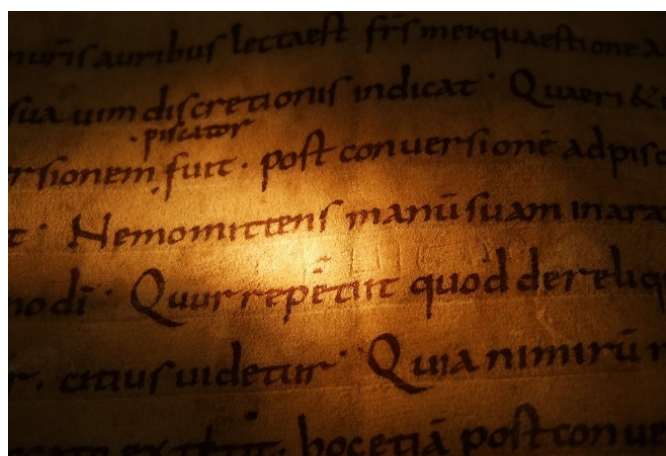 nuris auribus lectaest frs merquaestione a
sua uim discretionis indicat · Quaeri &i
piscator
rsionem fuit · post conuersionē adpisc
t · Nemo mittens manū suam inara
modi · Quur repētiit quod dereliq
r. citius uidetur · Quia nimirū r
hoc etiā post conue